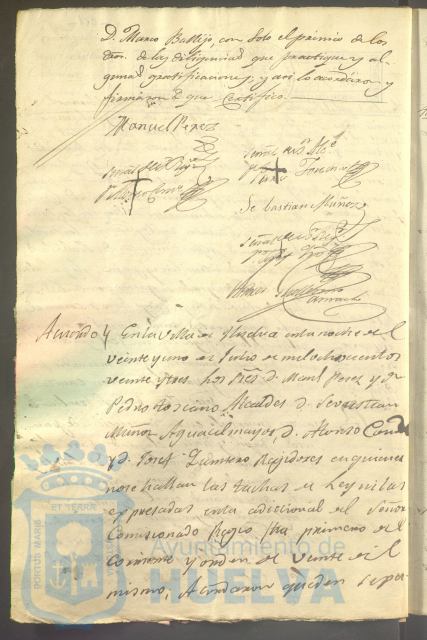 D. Marco Ballejo, con solo el premio de los
dros. de las diligencias que practique y al
gunas gratificaciones; y asi lo acordaron y
firmaron de que Certifico.
Manuel Perez
señal del
señal del
Sebastian Muñoz
señal del
Camacho
Acuerdo y En la Villa de Huelva en la noche del
veinte y uno de Julio de mil ochocientos
veinte y tres los Sres. D. Manl. Perez y Dn.
Pedro Toscano Alcaldes D. Sevastian
Muñoz Aguacil mayor, D. Alonso
y D. Josef Quintero Regidores en quienes
no se hallan las tachas de Ley ni las
expresadas en la adicional del Señor
Comisionado Regio fha primero del
corriente y orden de veinte del
mismo, Acordaron queden sepa-
PORTUS MARIS
ET TERRAE
Ayuntamiento de
HUELVA